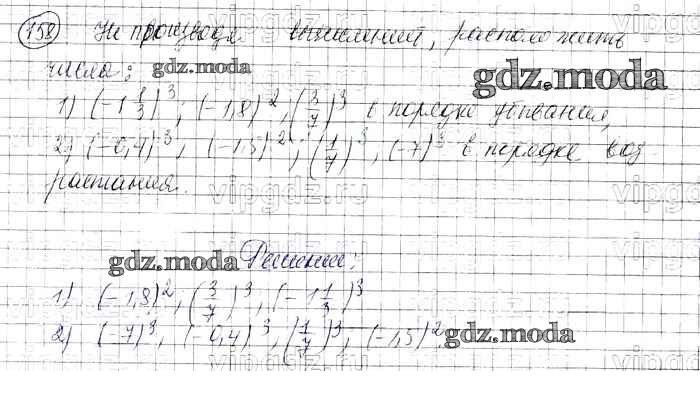 158 Не производя вычислений, расположить
числа: gdz.moda gdz.moda
1) (-1 1/3)^3; (-1,8)^2; (3/7)^3 в порядке убывания,
2) (-0,4)^3; (-1,5)^2; (1/7)^3, (-7)^3 в порядке воз
растания.
vipgdz.ru vipgdz.ru
gdz.moda Решение:
1) (-1,8)^2; (3/7)^3, (-1 1/3)^3
2) (-7)^3, (-0,4)^3, (1/7)^3, (-1,5)^2 gdz.moda